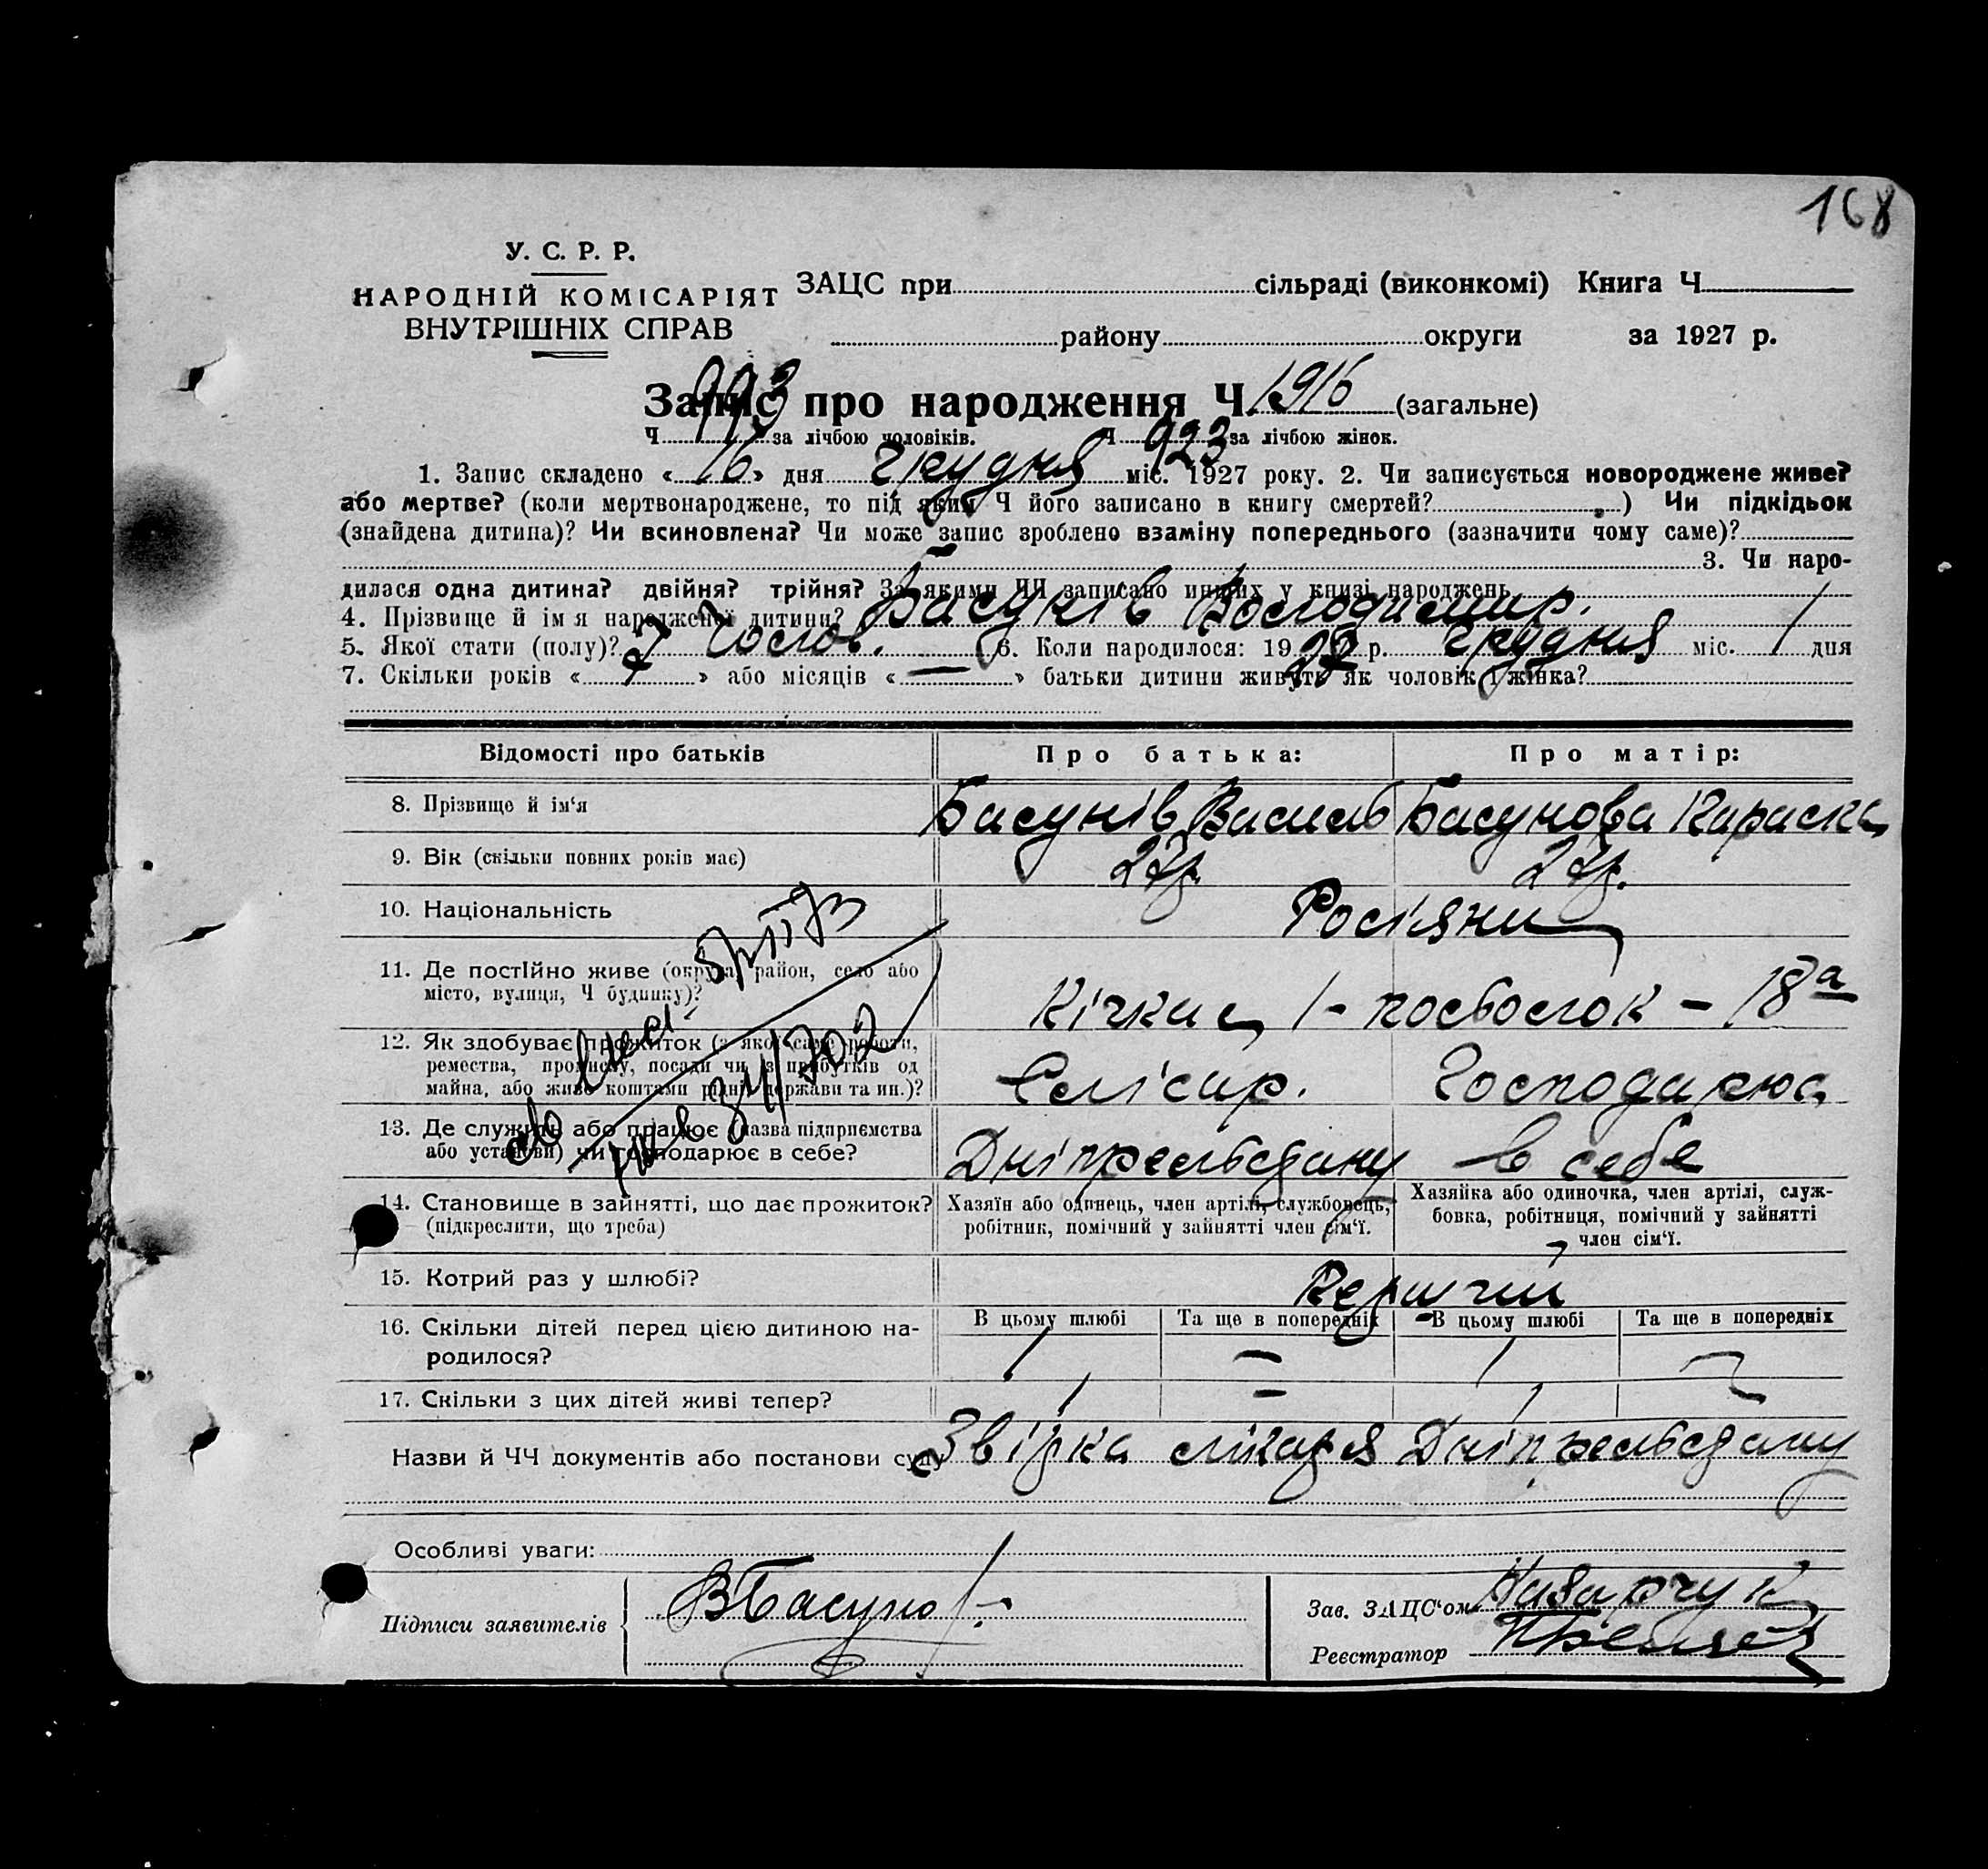 168
У. С. Р. Р.
НАРОДНІЙ КОМІСАРІЯТ
ВНУТРІШНІХ СПРАВ
ЗАЦС при сільраді (виконкомі) Книга Ч
району округи за 1927 р.
Запис про народження Ч. 1916 (загальне)
Ч 993 за лічбою чоловіків. Ч 923 за лічбою жінок.
1. Запис складено « 16 » дня грудня міс. 1927 року. 2. Чи записується новороджене живе?
або мертве? (коли мертвонароджене, то під яким Ч його записано в книгу смертей? ) Чи підкідьок
(знайдена дитина)? Чи всиновлена? Чи може запис зроблено взаміну попереднього (зазначити чому саме)?
3. Чи наро-
дилася одна дитина? двійня? трійня? За якими ЧЧ записано инших у книзі народжень
4. Прізвище й ім я народженої дитини? Басунів Володимир.
5. Якої стати (полу)? Чолов. 6. Коли народилося: 19 27 р. грудня міс. 1 дня
7. Скільки років « 7 » або місяців « — » батьки дитини живуть як чоловік і жінка?
Відомості про батьків Про батька: Про матір:
8. Прізвище й ім‘я Басунів Василь Басунова Параска
9. Вік (скільки повних років має) 27р. 27р.
10. Національність Росіяни
11. Де постійно живе (округа, район, село або
місто, вулиця, Ч будинку)? Кічкас 1 - посьолок - 18а
12. Як здобуває прожиток (з якої саме роботи,
ремества, промислу, посади чи з прибутків од
майна, або живе коштами рідні, держави та ин.)? Слісар. Господарює
13. Де служить або працює (назва підприємства
або установи) чи господарює в себе? Дніпрельсдану в себе
14. Становище в зайнятті, що дає прожиток?
(підкреслити, що треба)
Хазяїн або одинець, член артілі, службовець,
робітник, помічний у зайнятті член сім‘ї.
Хазяйка або одиночка, член артілі, служ-
бовка, робітниця, помічний у зайнятті
член сім‘ї.
15. Котрий раз у шлюбі? Перший
16. Скільки дітей перед цією дитиною на-
родилося?
В цьому шлюбі Та ще в попередніх В цьому шлюбі Та ще в попередніх
1 — 1 —
17. Скільки з цих дітей живі тепер? 1 — 1 —
Назви й ЧЧ документів або постанови суду Звірка лікаря Дніпрельсдану
Особливі уваги:
Підписи заявителів ВБасунов
Зав. ЗАЦС‘ом Назарчук
Реєстратор